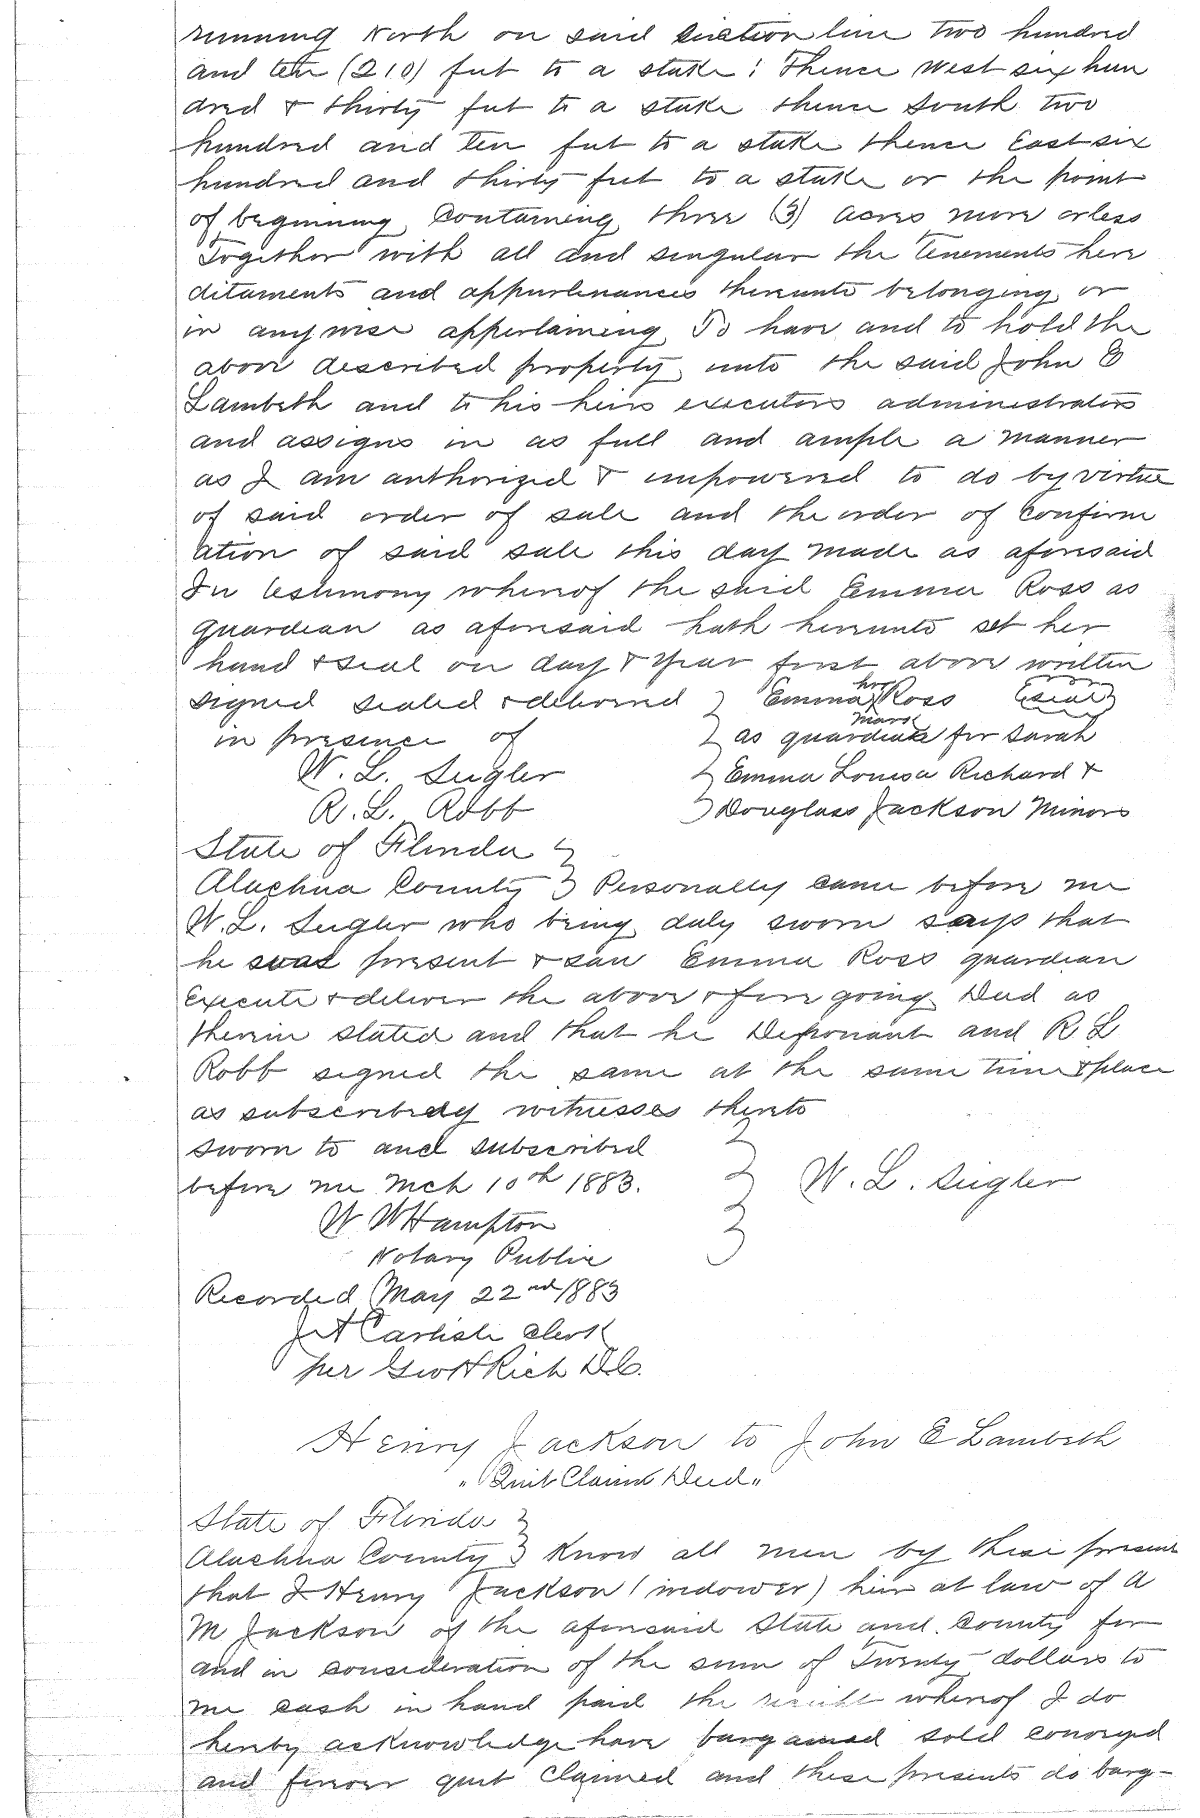 running North on said section line two hundred
and ten (210) feet to a stake; Thence West six hun
dred & thirty feet to a stake thence South two
hundred and ten feet to a stake thence East six
hundred and thirty feet to a stake or the point
of beginning, Containing three (3) acres more or less
Together with all and singular the Tenements here
ditaments and appurtenances thereunto belonging or
in any wise appertaining, To have and to hold the
above described property unto the said John E
Lambeth and to his heirs executors administrators
and assigns in as full and ample a manner
as I am authorized & empowered to do by virtue
of said order of sale and the order of Confirm
ation of said sale this day made as aforesaid
In testimony whereof the said Emma Ross as
guardian as aforesaid hath hereunto set her
hand & seal on day & year first above written
signed sealed & delivered } Emma her mark Ross (seal)
in presence of } as guardian for Sarah
W. L. Sugler } Emma Louisa Richard &
R. L. Robb } Douglass Jackson Minors
State of Florida }
Alachua County } Personally came before me
W. L. Sugler who being duly sworn says that
he was present & saw Emma Ross guardian
Execute & deliver the above & fore going Deed as
therein stated and that he Deponant and R L
Robb signed the same at the same time & place
as subscribing witnesses thereto
sworn to and subscribed }
before me Mch 10th 1883. } W. L. Sugler
W W Hampton }
Notary Public
Recorded May 22nd 1883
J A Carlisle Clerk
per Geo H Rich D.C.
Henry Jackson to John E Lambeth
"Quit Claim Deed"
State of Florida }
Alachua County } Know all men by these present
that I Henry Jackson (widower) heir at law of A
M Jackson of the aforesaid State and County for
and in consideration of the sum of Twenty dollars to
me cash in hand paid the receipt whereof I do
hereby acknowledge have bargained sold conveyed
and forever quit Claimed and these presents do barg-